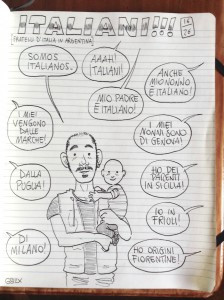 ITALIANI!!!
FRATELLI D'ITALIA IN ARGENTINA
SOMOS
ITALIANOS.
AAAH!
ITALIANI!
ANCHE
MIO NONNO
È ITALIANO!
MIO PADRE
È ITALIANO!
I MIEI
VENGONO
DALLE
MARCHE!
I MIEI
NONNI SONO
DI GENOVA!
DALLA
PUGLIA!
HO DEI
PARENTI
IN SICILIA!
IO IN
FRIULI!
DI
MILANO!
HO ORIGINI
FIORENTINE!